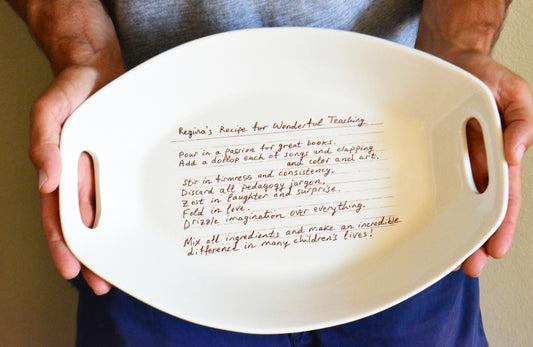 Regina's Recipe for Wonderful Teaching
Pour in a passion for great books.
Add a dollop each of songs and clapping
and color and art.
Stir in firmness and consistency.
Discard all pedagogy jargon.
Zest in laughter and surprise.
Fold in love.
Drizzle imagination over everything.
Mix all ingredients and make an incredible
difference in many children's lives!